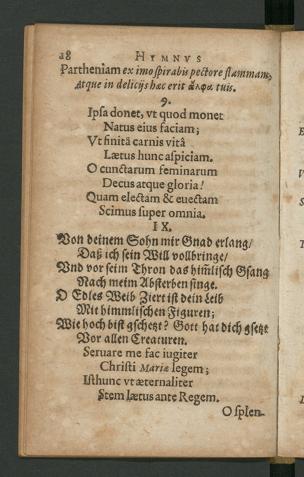 28 HYMNVS
Partheniam ex imo spirabis pectore flammam,
Atque in delicijs hæc erit ἄλφα tuis.
9.
Ipsa donet, vt quod monet
Natus eius faciam;
Vt finitâ carnis vitâ
Lætus hunc aspiciam.
O cunctarum feminarum
Decus atque gloria!
Quam electam & euectam
Scimus super omnia.
IX.
Von deinem Sohn mir Gnad erlang/
Daß ich sein Will vollbringe/
Vnd vor seim Thron das him̃lisch Gsang
Nach meim Absterben singe.
O Edles Weib Ziert ist dein Leib
Mit himmlischen Figuren;
Wie hoch bist gschetzt? Gott hat dich gsetzt
Vor allen Creaturen.
Seruare me fac iugiter
Christi Mariæ legem;
Isthunc vt æternaliter
Stem lætus ante Regem.
O splen-